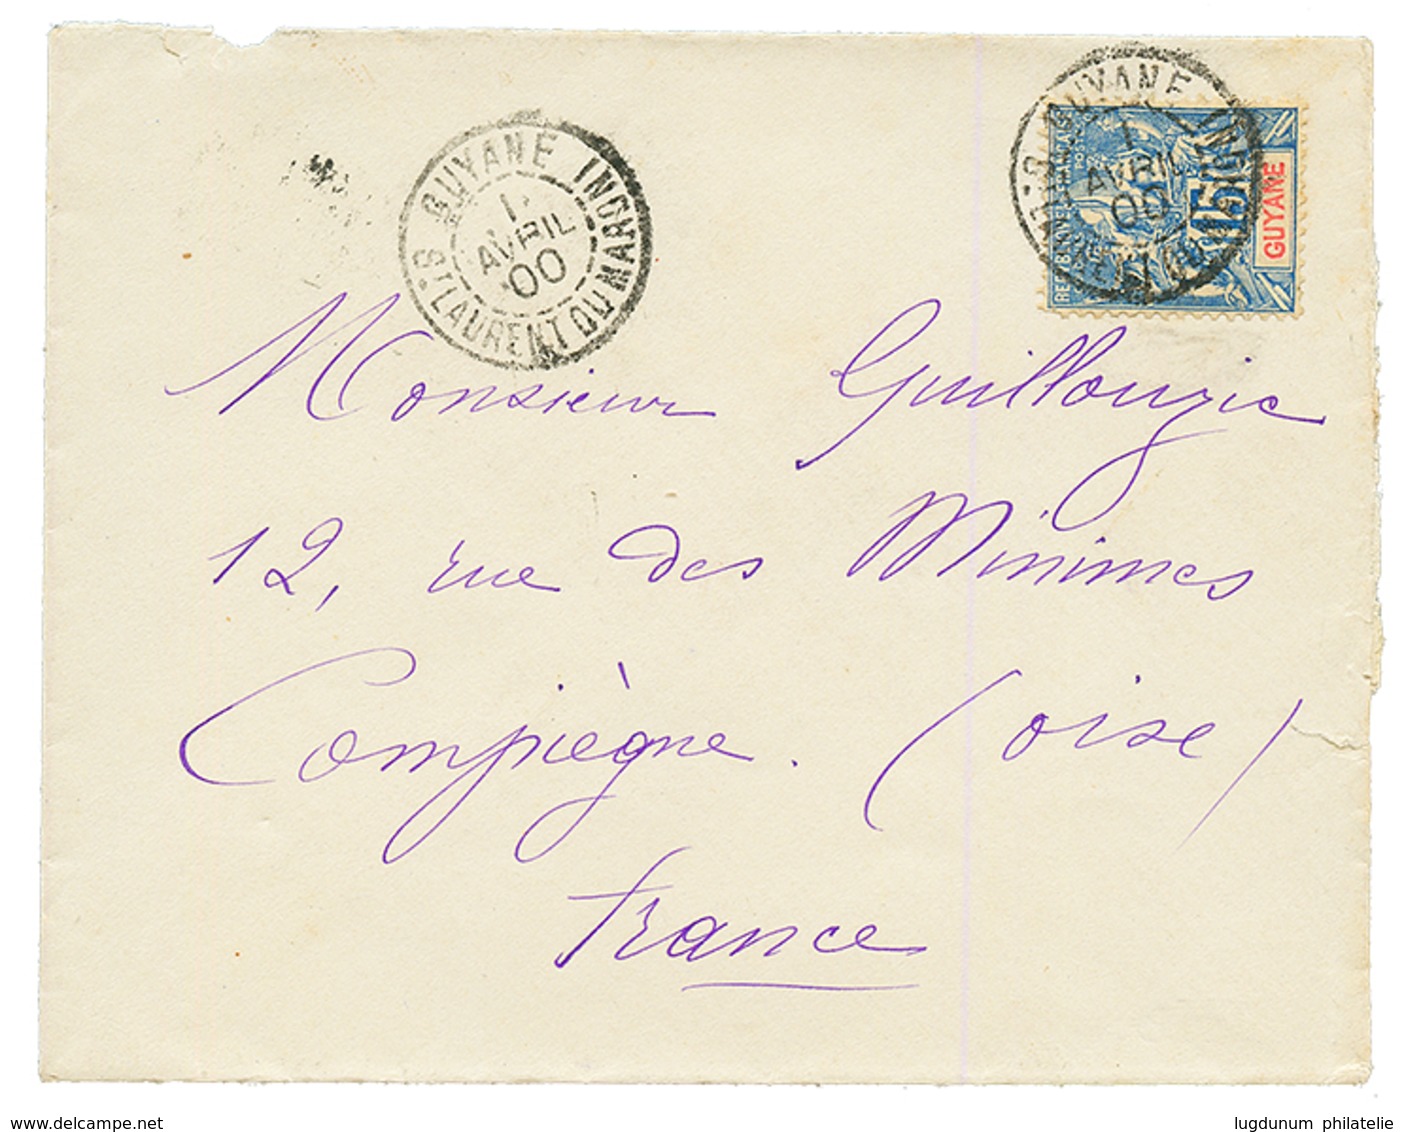 GUYANE INGR
1
AVRIL
00
ST LAURENT DU MARONI
GUYANE
1
AVRIL
00
15
GUYANE
Monsieur Guillouzic
12, rue des Minimes
Compiègne. (oise)
France
www.delcampe.net
lugdunum philatelie